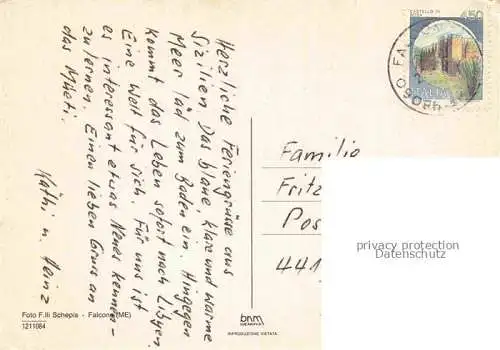 Herzliche Feriengrüsse aus
Sizilien. Das blaue, klare und warme
Meer läd zum Baden ein. Hingegen
kommt das Leben sofort nach Libyen.
Eine Welt für sich. Für uns ist
es interessant etwas Neues kennen-
zulernen. Einen lieben Gruss an
das Müeti.
Käthi u. Heinz
Foto F.lli Schepis - Falcone (ME)
1211084
bnm
RIPRODUZIONE VIETATA
CASTELLO DI
450
ITALIA
98060
Familie
Fritz
Pos
441
privacy protection
Datenschutz